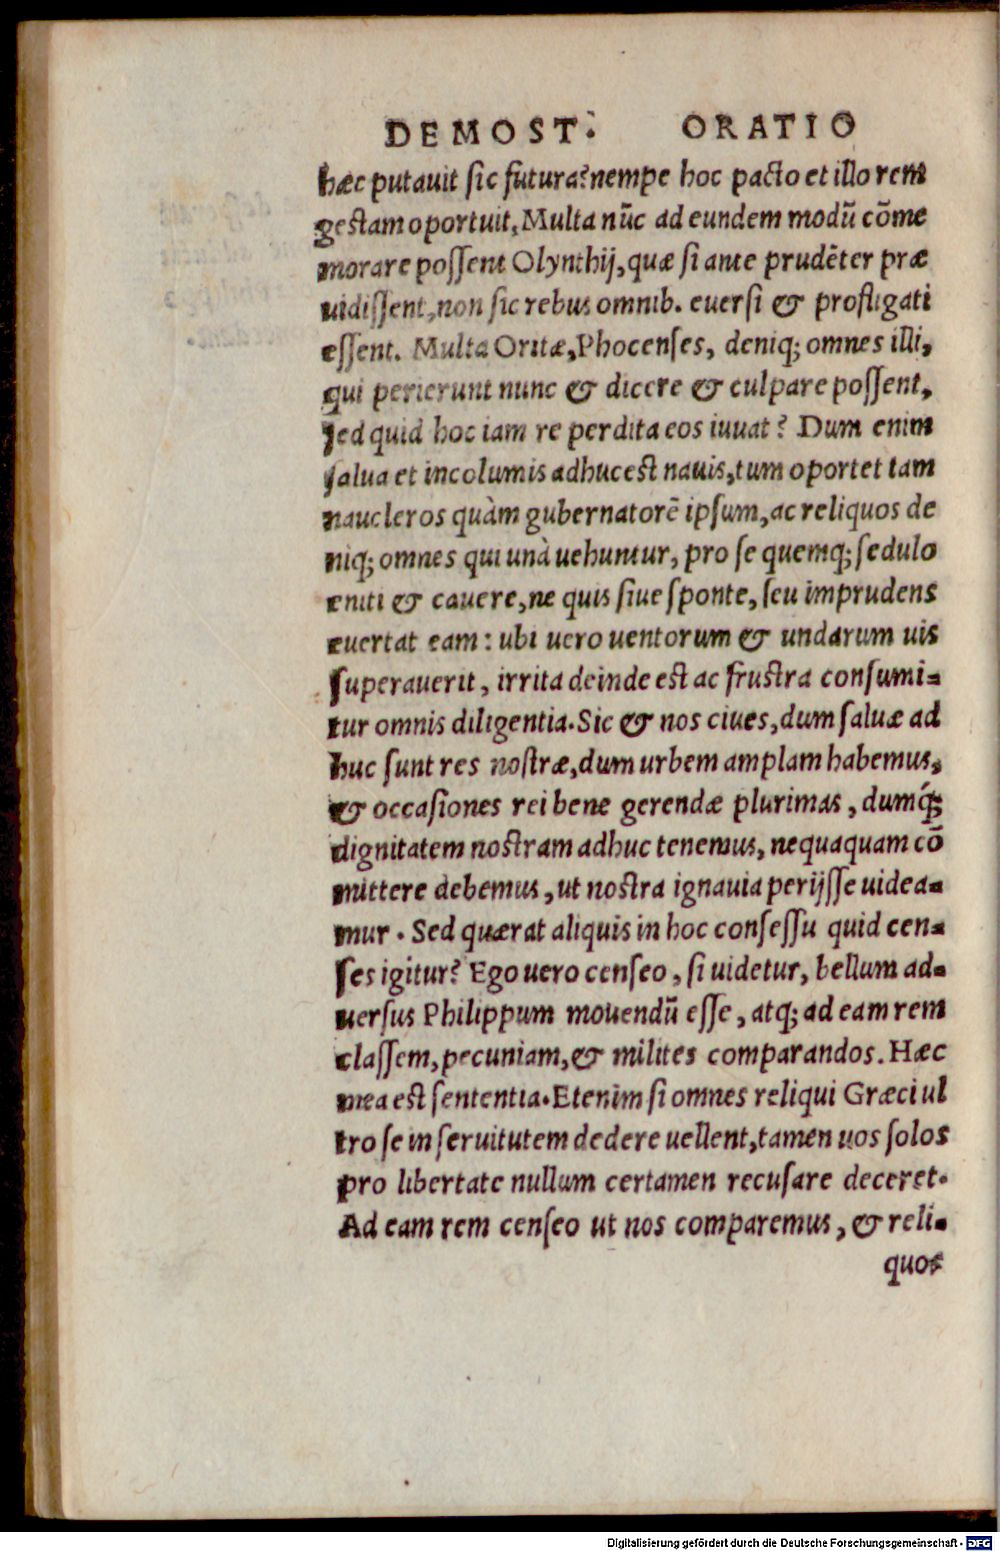 DEMOST. ORATIO
hæc putauit sic futura? nempe hoc pacto et illo rem
gestam oportuit, Multa nūc ad eundem modū cōme
morare possent Olynthij, quæ si ante prudēter præ
uidissent, non sic rebus omnib. euersi & profligati
essent. Multa Oritæ, Phocenses, deniq; omnes illi,
qui perierunt nunc & dicere & culpare possent,
sed quid hoc iam re perdita eos iuuat? Dum enim
salua et incolumis adhuc est nauis, tum oportet tam
naucleros quàm gubernatorē ipsum, ac reliquos de
niq; omnes qui unà uehuntur, pro se quemq; sedulo
eniti & cauere, ne quis siue sponte, seu imprudens
euertat eam: ubi uero uentorum & undarum uis
superauerit, irrita deinde est ac frustra consumi-
tur omnis diligentia. Sic & nos ciues, dum saluæ ad
huc sunt res nostræ, dum urbem amplam habemus,
& occasiones rei bene gerendæ plurimas, dumq́;
dignitatem nostram adhuc tenemus, nequaquam cō
mittere debemus, ut nostra ignauia perijsse uidea-
mur. Sed quærat aliquis in hoc consessu quid cen-
ses igitur? Ego uero censeo, si uidetur, bellum ad-
uersus Philippum mouendū esse, atq; ad eam rem
classem, pecuniam, & milites comparandos. Hæc
mea est sententia. Etenim si omnes reliqui Græci ul
tro se in seruitutem dedere uellent, tamen uos solos
pro libertate nullum certamen recusare deceret.
Ad eam rem censeo ut nos comparemus, & reli-
quos
Digitalisierung gefördert durch die Deutsche Forschungsgemeinschaft - DFG